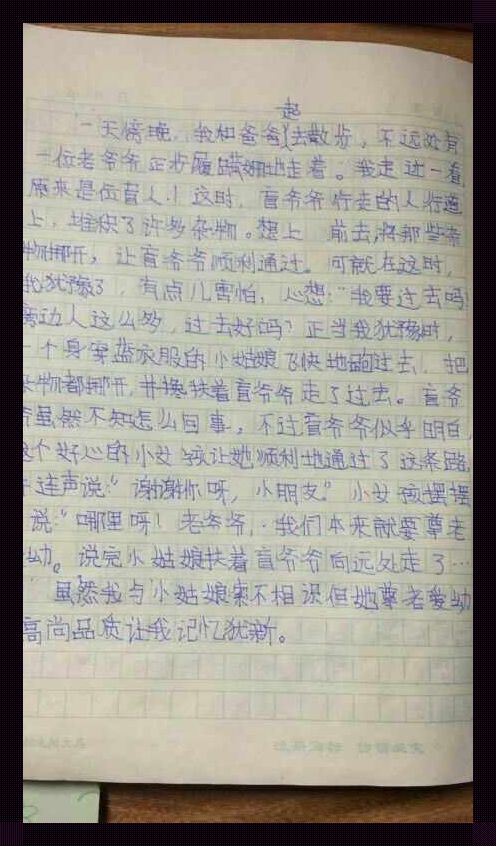 起
一天傍晚，我和爸爸去散步，不远处有
一位老爷爷正步履蹒跚地走着。我走进一看，
原来是位盲人！这时，盲爷爷行走的人行道
上，堆积了许多杂物。想上前去，将那些杂
物挪开，让盲爷爷顺利通过。可就在这时，
我犹豫了，有点儿害怕，心想：“我要过去吗？
旁边人这么多，过去好吗？正当我犹豫时，
一个身穿蓝衣服的小姑娘飞快地跑过去，把
杂物都挪开，并搀扶着盲爷爷走了过去。盲爷
爷虽然不知怎么回事，不过盲爷爷似乎明白，
这个好心的小女孩让她顺利地通过了这条路，
连声说：“谢谢你呀，小朋友。”小女孩摆摆
说：“哪里呀！老爷爷，我们本来就要尊老
幼。说完小姑娘扶着盲爷爷向远处走了…
虽然我与小姑娘素不相识但她尊老爱幼
高尚品质让我记忆犹新。